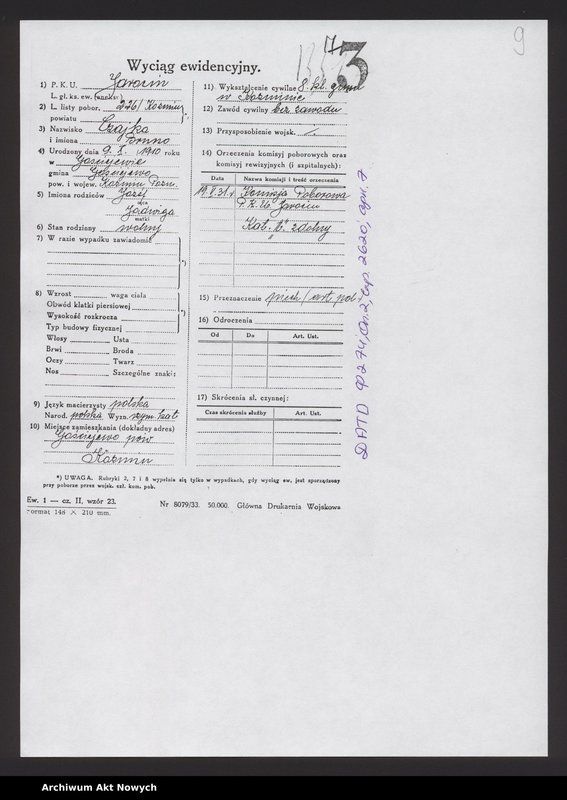 9
173
Wyciąg ewidencyjny.
1) P. K. U. Jarocin
L. gł. ks. ew. (aneksu)
2) L. listy pobor. 226/Koźmin
powiatu
3) Nazwisko Czajka
i imiona Bruno
4) Urodzony dnia 9. X. 1910 roku
w Gościejewie
gmina Gościejewo
pow. i wojew. Koźmin Pozn.
5) Imiona rodziców Józef
ojca
Jadwiga
matki
6) Stan rodziny wolny
7) W razie wypadku zawiadomić
*)
8) Wzrost waga ciała
Obwód klatki piersiowej
Wysokość rozkrocza
Typ budowy fizycznej
*)
Włosy Usta
Brwi Broda
Oczy Twarz
Nos Szczególne znaki:
9) Język macierzysty polska
Narod. polska Wyzn. rzym. kat
10) Miejsce zamieszkania (dokładny adres)
Gościejewo pow.
Koźmin
11) Wykształcenie cywilne 8. kl. gimn
w Koźminie
12) Zawód cywilny bez zawodu
13) Przysposobienie wojsk. /
14) Orzeczenia komisyj poborowych oraz
komisyj rewizyjnych (i szpitalnych):
Data Nazwa komisji i treść orzeczenia
19.V.31.r. Komisja Poborowa
P. K. U. Jarocin
Kat. "A" zdolny
15) Przeznaczenie piech/art. pol.
16) Odroczenia
Od Do Art. Ust.
17) Skrócenia sł. czynnej:
Czas skrócenia służby Art. Ust.
*) UWAGA. Rubryki 2, 7 i 8 wypełnia się tylko w wypadkach, gdy wyciąg ew. jest sporządzony
przy poborze przez wojsk. czł. kom. pob.
Ew. 1 — cz. II, wzór 23.
Format 148 × 210 mm.
Nr 8079/33. 50.000. Główna Drukarnia Wojskowa
DATD Ф 274, Оп. 2, Спр. 2620, арк. 7
Archiwum Akt Nowych